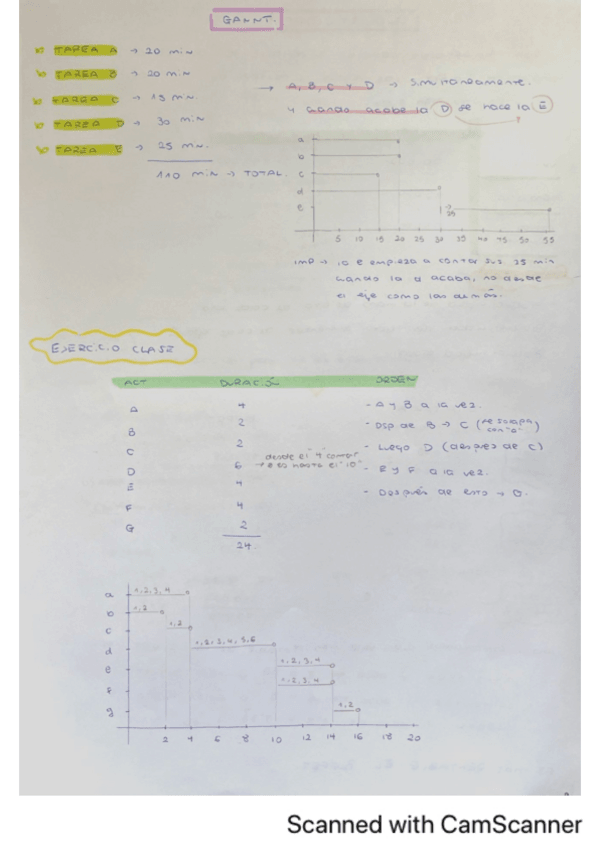 GANNT.
TAREA A → 20 min
TAREA B → 20 min
TAREA C → 15 min
TAREA D → 30 min
TAREA E → 25 min.
110 min → TOTAL.
→ A, B, C Y D → simultáneamente.
y cuando acabe la D se hace la E
a
b
c
d
e
25
5 10 15 20 25 30 35 40 45 50 55
IMP → la e empieza a contar sus 25 min
cuando la d acaba, no desde
el eje como las demás.
EJERCICIO CLASE
ACT DURACIÓN ORDEN
A 4 - A y B a la vez.
B 2 - Dsp de B → C (se solapa con "a")
C 2 - Luego D (después de C)
D 6 desde el "4" contar → e es hasta el "10" - E y F a la vez.
E 4 - Después de esto → G.
F 4
G 2
24.
a 1, 2, 3, 4
b 1, 2
c 1, 2
d 1, 2, 3, 4, 5, 6
e 1, 2, 3, 4
f 1, 2, 3, 4
g 1, 2
2 4 6 8 10 12 14 16 18 20
Scanned with CamScanner